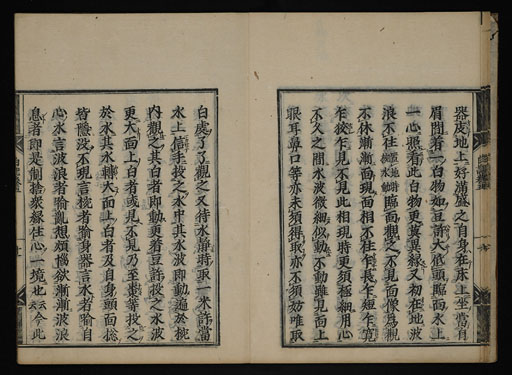 器處地上好滿盛之自身在床上坐當自
眉間着一白物如豆許大低頭臨面水上
一心照看此白物更莫異緣又初在地波
浪不住臨面觀之不見面像爲觀
不休漸漸面現面相不住乍長乍短乍寛
乍狹乍見不見此相現時更須極細用心
不久之間水波微細似動不動雖見面上
眼耳鼻口等亦未須得取亦不須妨唯取
白處了了觀之又待水靜時取一米許當
水上信手投之水中其水波即動遍於椀
内觀之其白者即動更着豆許投之水波
更大面上白者或見不見乃至棗等投之
於水其水轉大面上白者及自身頭面總
皆隱沒不現言椀者喻身器言水者喻自
心水言波浪者喻亂想煩惱欲漸漸波浪
息者即是制捨衆縁住心一境也云云今此